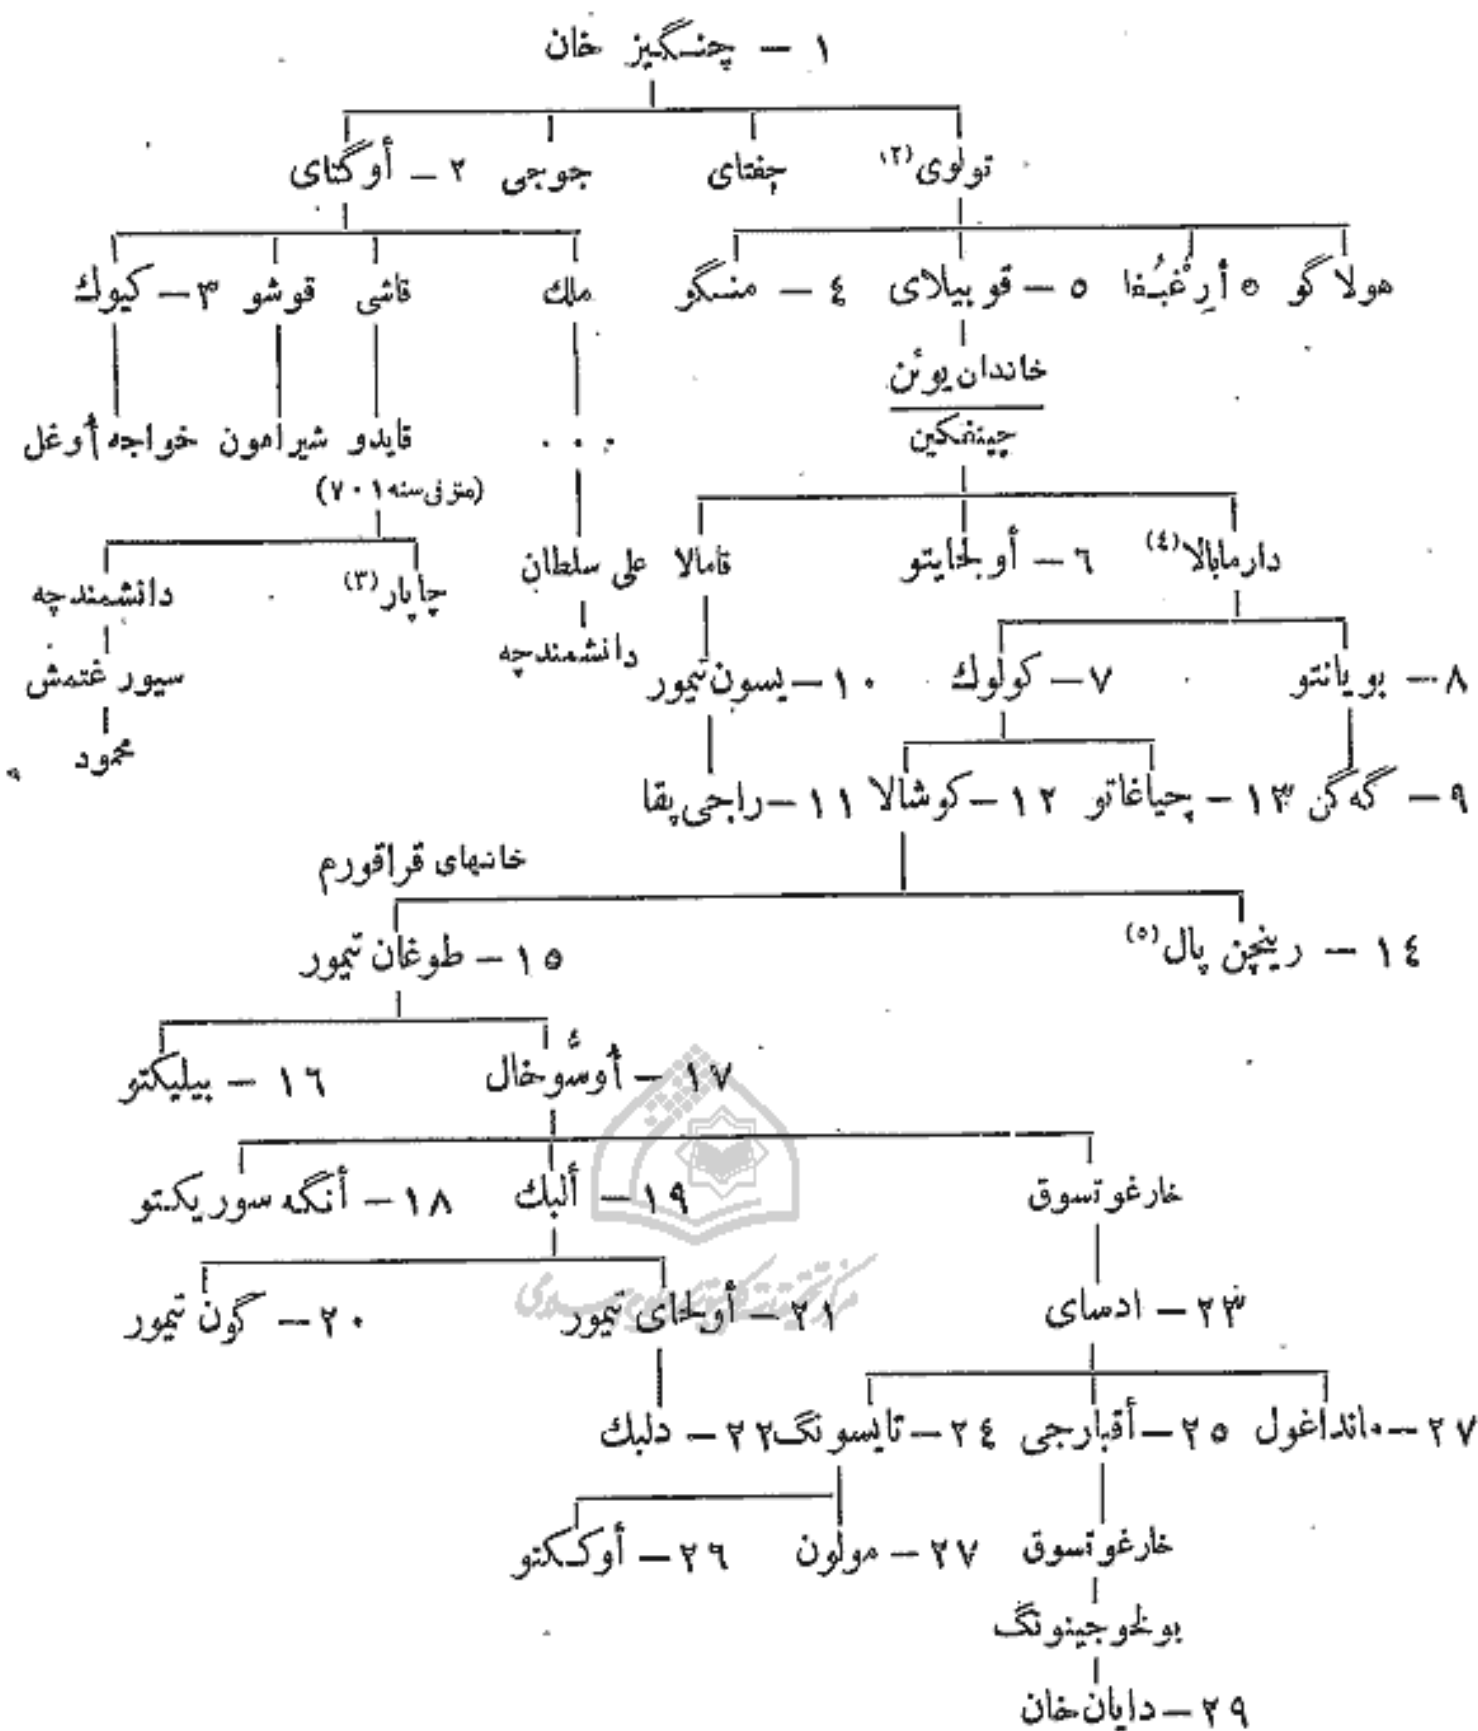 ۱ – چنگیز خان
تولوی (۲) چغتای جوجی ۲ – أوگتای
هولاگو ٥ أرِغْبُغا ٥ – قوبیلای ٤ – منگو ملك قاشی قوشو ۳ – کیوك
خاندان یوئن
چینکین ... قایدو شیرامون خواجه أوغل
(متوفی سنه ۷۰۱)
دارمابالا (٤) ٦ – أولجایتو قامالا علی سلطان چاپار (۳) دانشمندچه
۸ – بویانتو ۷ – کولوك ۱۰ – یسون تیمور دانشمندچه سیور غتمش
۹ – گه گن ۱۳ – چیاغاتو ۱۲ – کوشالا ۱۱ – راجی پقا محمود
خانهای قراقورم
۱٤ – رینچن پال (٥) ۱٥ – طوغان تیمور
۱۷ – أوسّوخال ۱٦ – بیلیکتو
خارغوتسوق ۱۹ – ألبك ۱۸ – أنگه سوریکتو
۲۳ – ادسای ۲۱ – أولجای تیمور ۲۰ – گون تیمور
۲۷ – مانداغول ۲٥ – أقبارجی ۲٤ – تایسونگ ۲۲ – دلبك
خارغوتسوق ۲۷ – مولون ۲٦ – أوککتو
بولخوجینونگ
۲۹ – دایان خان